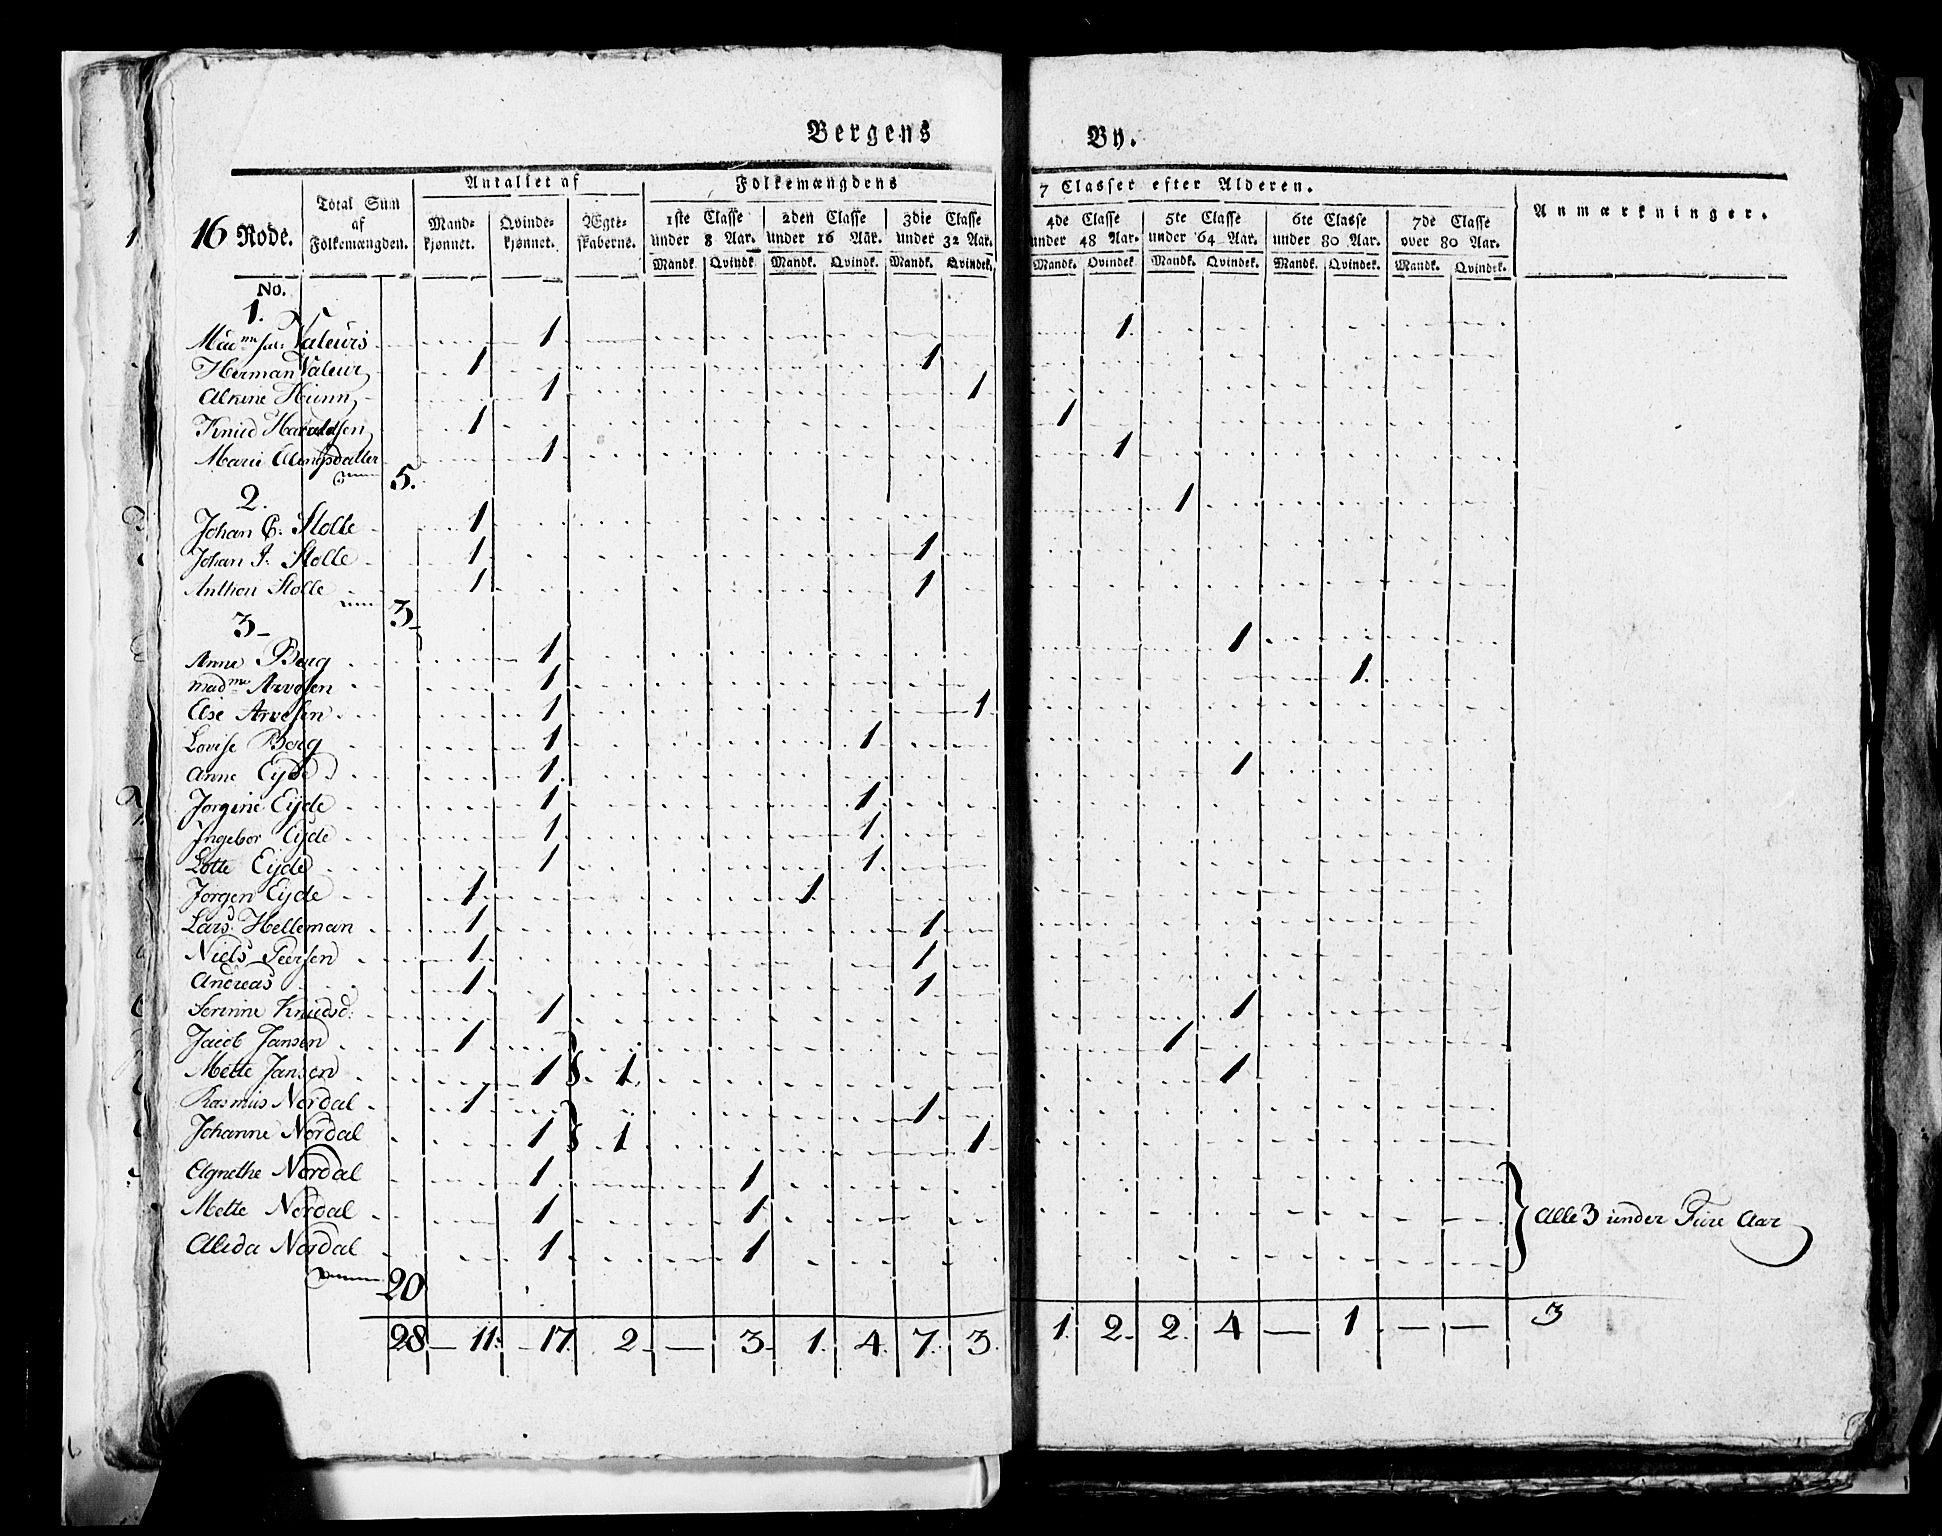 Bergens By.
16 Rode. Total Sum af Folkemængden. Antallet af Folkemængdens 7 Classer efter Alderen. Anmærkninger.
Mandkjønnet. Qvindekjønnet. Ægteskaberne. 1ste Classe under 8 Aar. 2den Classe under 16 Aar. 3die Classe under 32 Aar. 4de Classe under 48 Aar. 5te Classe under 64 Aar. 6te Classe under 80 Aar. 7de Classe over 80 Aar.
Mandk. Qvindk. Mandk. Qvindk. Mandk. Qvindek. Mandk. Qvindek. Mandk. Qvindk. Mandk. Qvindek. Mandk. Qvindek.
No.
1.
Madme sal: Valeurs 1 1
Herman Valeur 1 1
Alkine 1 1
Knud Haraldsen 1 1
Marie 1 1
5.
2.
Johan C. Stolle 1 1
Johan J. Stolle 1 1
Anthon Stolle 1 1
3
3
Anne Berg 1 1
madme Arvesen 1 1
Else Arvesen 1 1
Lovise Berg 1 1
Anne Eyde 1 1
Jørgine Eyde 1 1
Ingebor Eyde 1 1
Lotte Eyde 1 1
Jørgen Eyde 1 1
Lars Helleman 1 1
Niels Peersen 1 1
Andreas 1 1
Serinne Knudsd: 1 1
Jacob Jansen 1 1
Mette Jansen 1 1 1
Rasmus Nordal 1 1
Johanne Nordal 1 1 1
Agnethe Nordal 1 1
Mette Nordal 1 1 Alle 3 under Fire Aar
Alida Nordal 1 1
20
28 – 11. – 17. 2 – 3 1. 4. 7. 3. 1. 2. 2. 4 – 1 – – 3